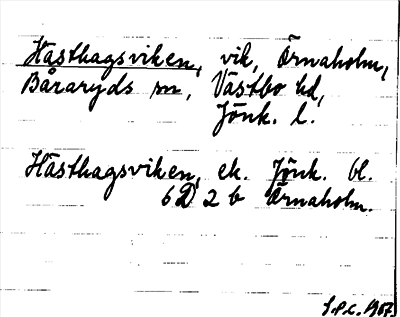 Hästhagsviken, vik, Örnaholm,
Båraryds sn, Västbo hd,
Jönk. l.
Hästhagsviken, ek. Jönk. bl.
6 D 2 b Örnaholm.
1967